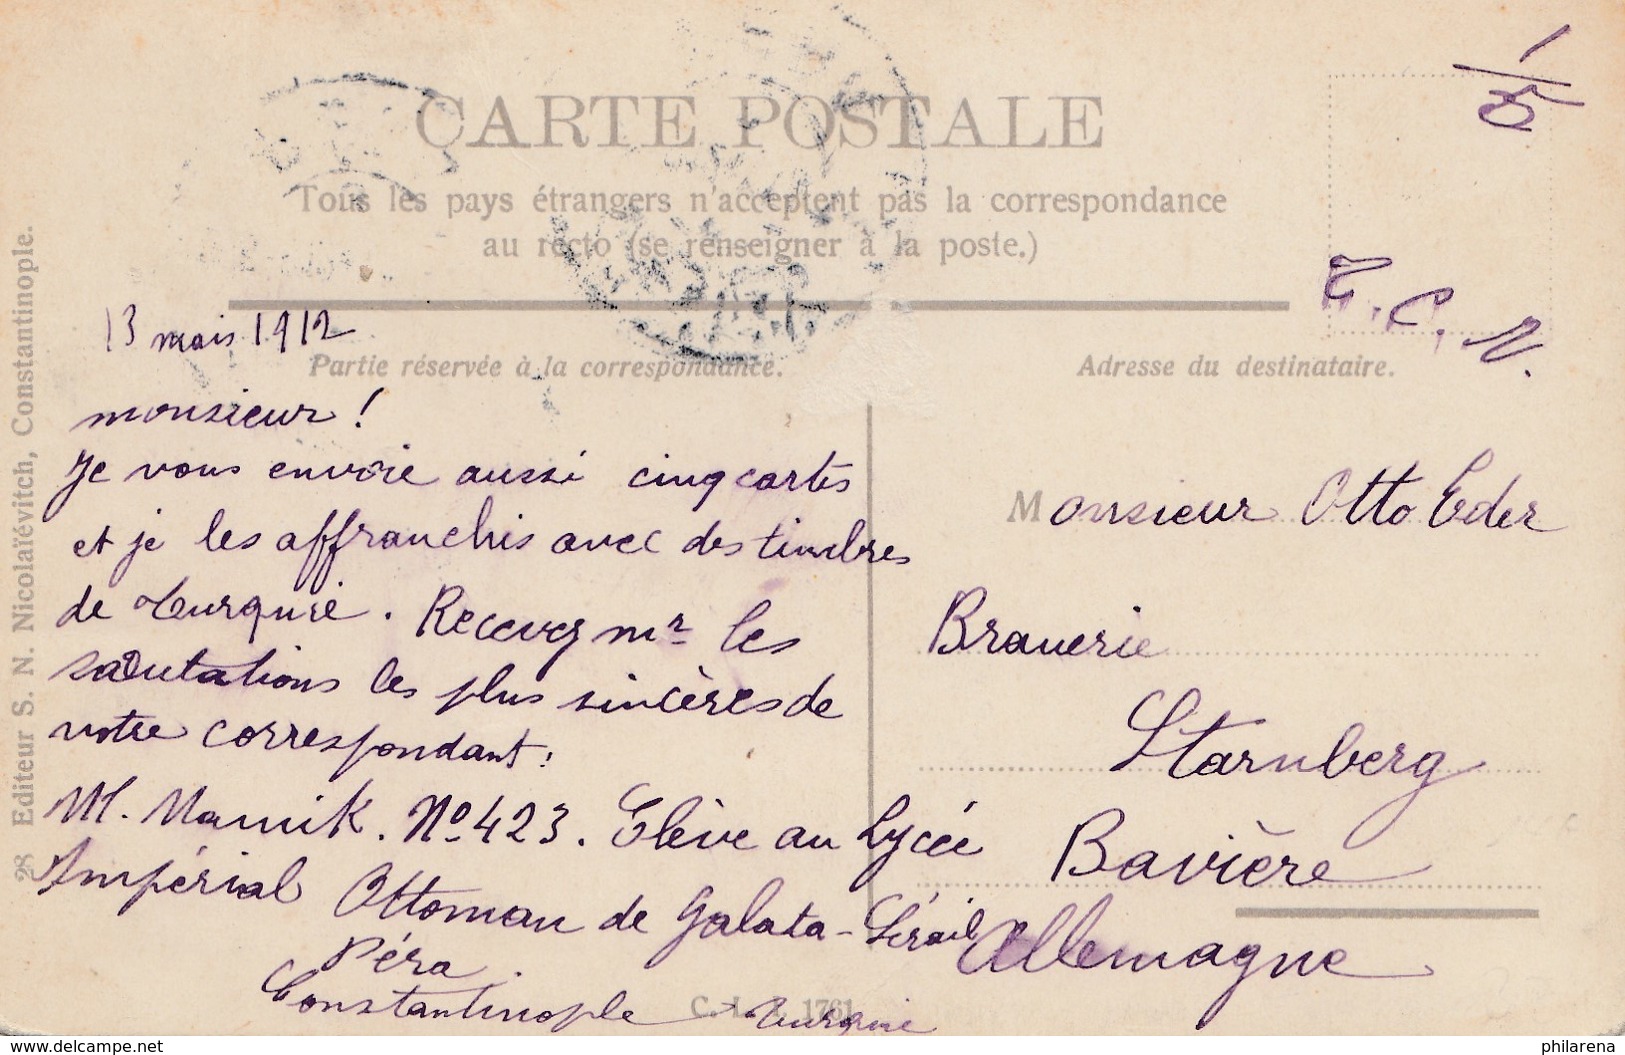 CARTE POSTALE
Tous les pays étrangers n'acceptent pas la correspondance
au recto (se renseigner à la poste.)
T.C.V.
13 mais 1912
Partie réservée à la correspondance.
Adresse du destinataire.
monsieur!
Je vous envoie aussi cinq cartes
et je les affranchis avec des timbres
de Turquie. Recevez mr les
salutations les plus sincères de
votre correspondant:
M. Namik. No 423. Elève au Lycée
Impérial Ottoman de Galata-Séraïl
Péra
Constantinople Turquie
Monsieur Otto Eder
Brauerie
Starnberg
Bavière
Allemagne
28 Editeur S. N. Nicolaïévitch, Constantinople.
www.delcampe.net
philarena